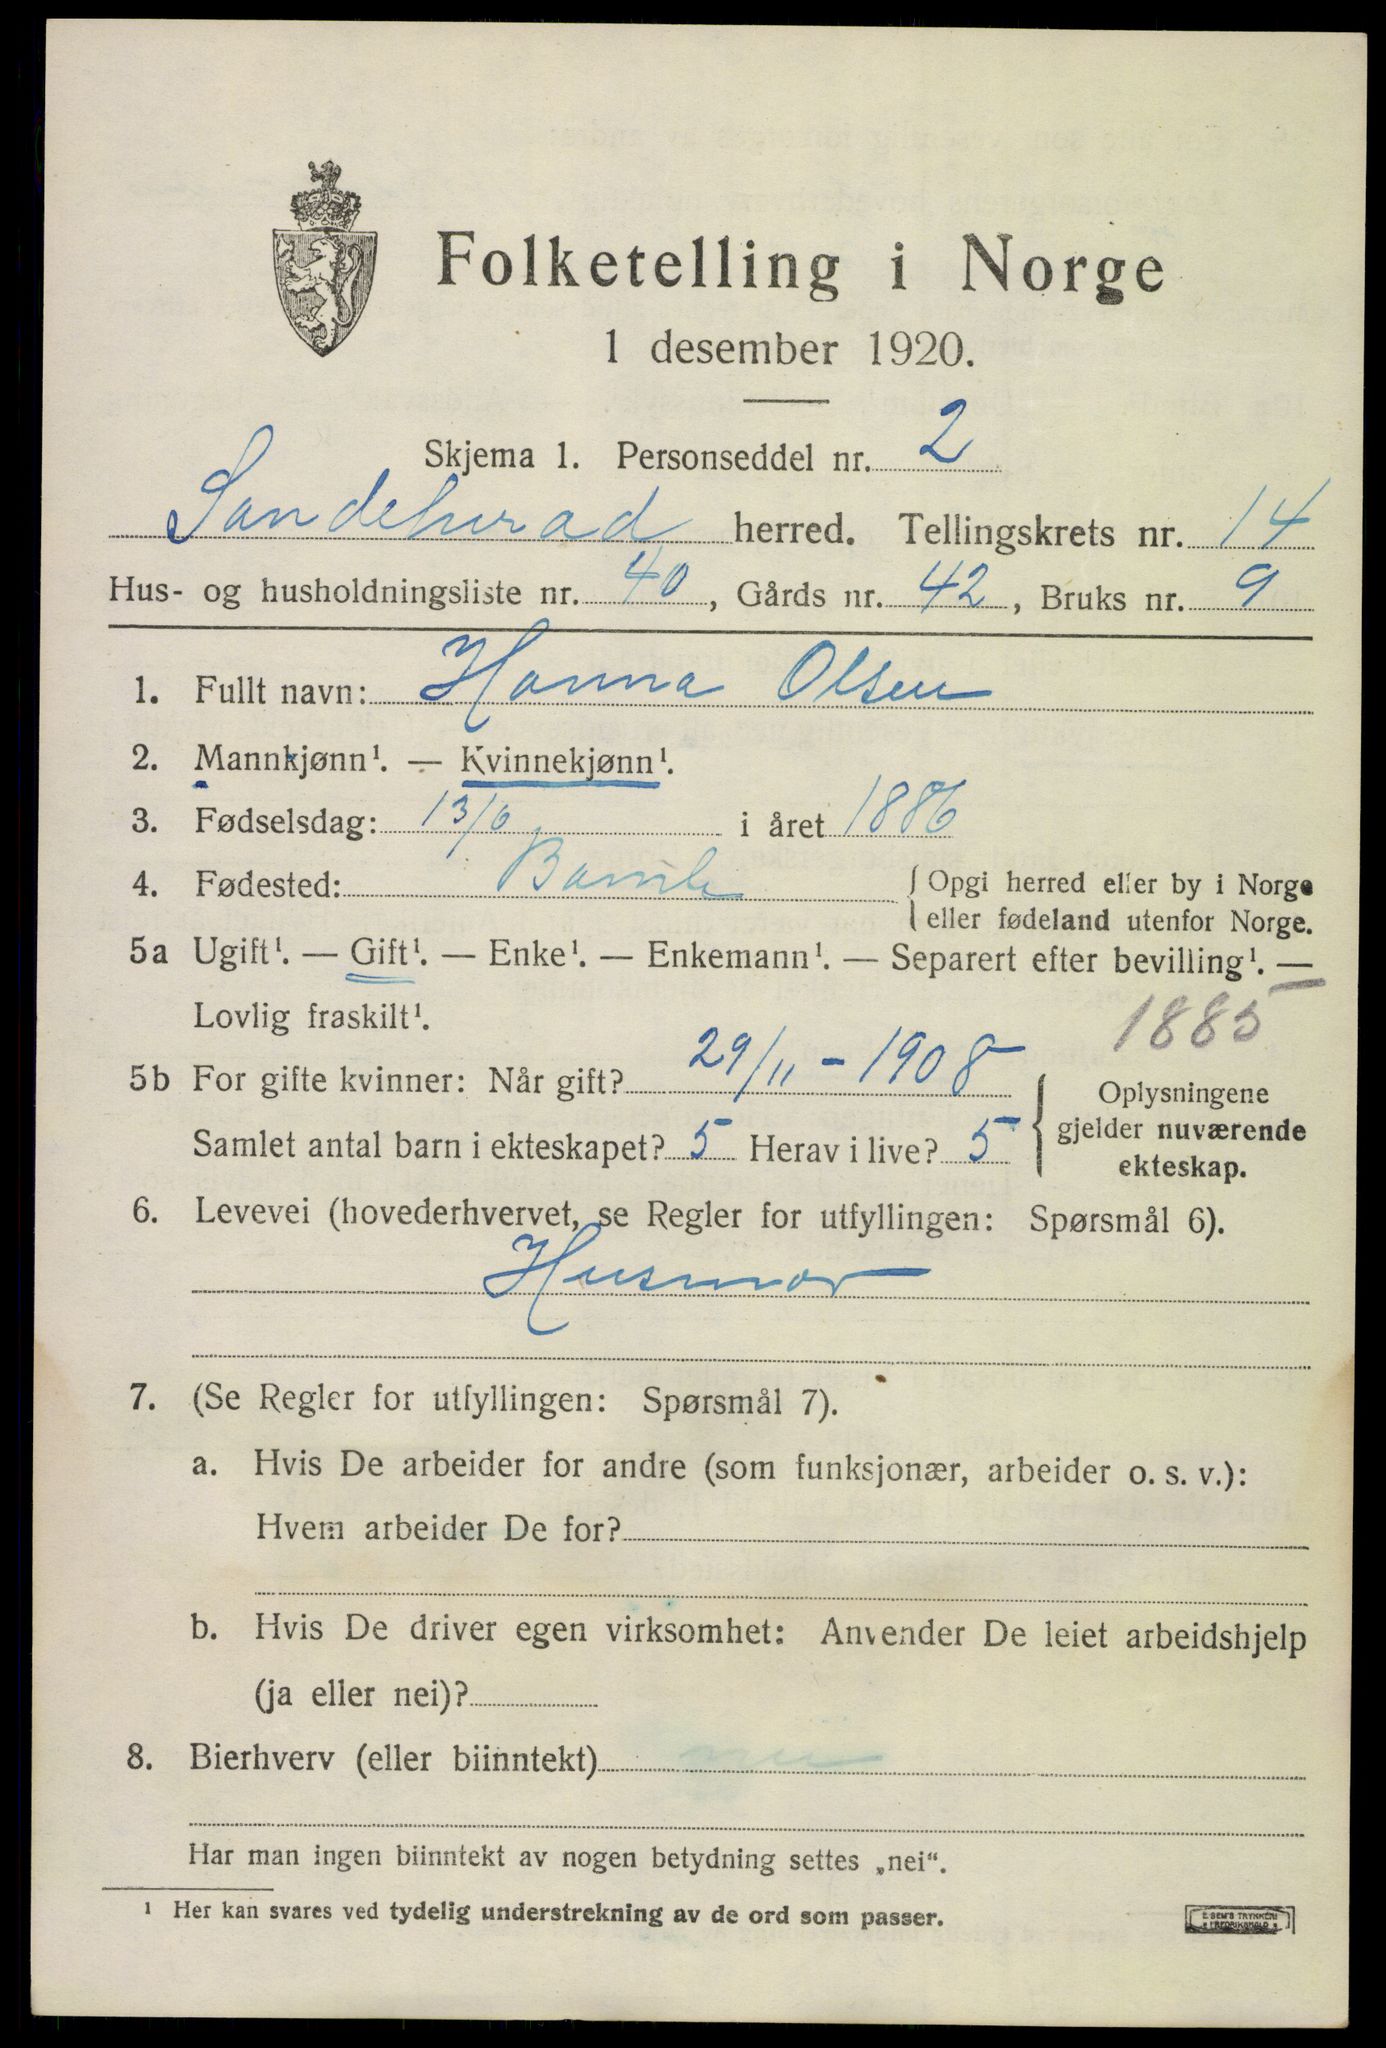 Folketelling i Norge
1 desember 1920.
Skjema 1. Personseddel nr. 2
Sandeherad herred. Tellingskrets nr. 14
Hus- og husholdningsliste nr. 40, Gårds nr. 42, Bruks nr. 9
1. Fullt navn: Hanna Olsen
2. Mannkjønn¹. — Kvinnekjønn¹.
3. Fødselsdag: 13/6 i året 1886
4. Fødested: Bamle { Opgi herred eller by i Norge
eller fødeland utenfor Norge.
5a Ugift¹. — Gift¹. — Enke¹. — Enkemann¹. — Separert efter bevilling¹. —
Lovlig fraskilt¹. 1885
5b For gifte kvinner: Når gift? 29/11 - 1908
Samlet antal barn i ekteskapet? 5 Herav i live? 5
Oplysningene
gjelder nuværende
ekteskap.
6. Levevei (hovederhvervet, se Regler for utfyllingen: Spørsmål 6).
Husmor
7. (Se Regler for utfyllingen: Spørsmål 7).
a. Hvis De arbeider for andre (som funksjonær, arbeider o. s. v.):
Hvem arbeider De for?
b. Hvis De driver egen virksomhet: Anvender De leiet arbeidshjelp
(ja eller nei)?
8. Bierhverv (eller biinntekt) nei
Har man ingen biinntekt av nogen betydning settes „nei“.
¹ Her kan svares ved tydelig understrekning av de ord som passer.
E. SEM'S TRYKKERI
FREDRIKSHALD